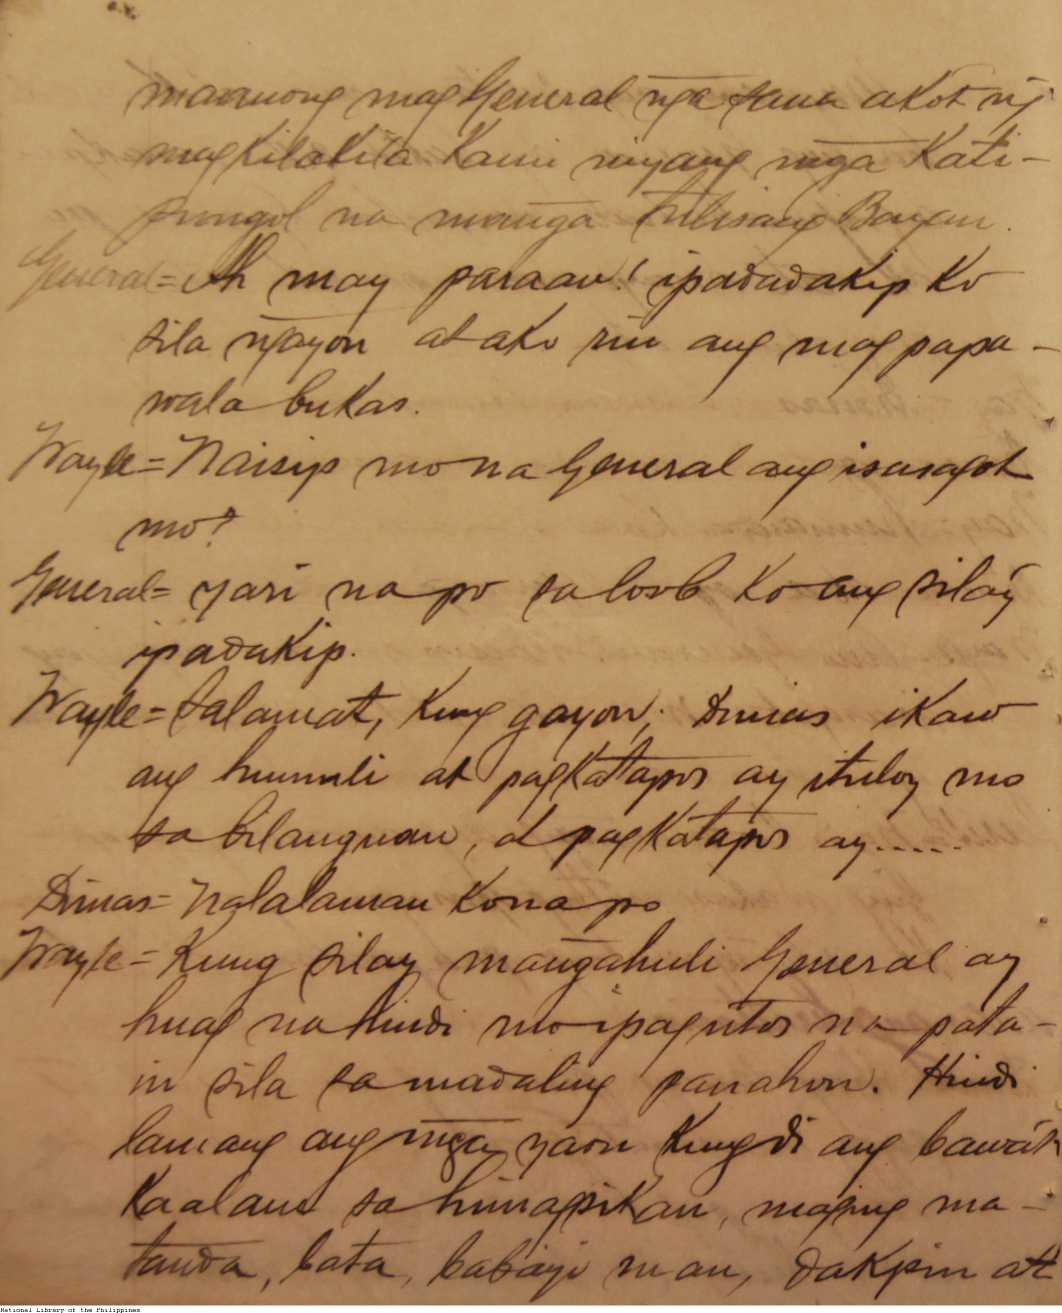 marunong mag General nga sana akot ng
magkilakila kami niyang mga Kati-
pungol na manga tulisang Bayan.
General= Ah may paraan! ipadadakip ko
sila ngayon at ako rin ang magpapa-
wala bukas.
Wayle= Naisip mo na General ang isasagot
mo?
General= yari na po sa loob ko ang silay
ipadakip.
Wayle= Salamat, kung gayon; Dimas ikaw
ang humuli at pagkatapos ay ituloy mo
sa bilanguan, at pagkatapos ay.....
Dimas= Nalalaman kona po
Wayle= Kung silay mangahuli General ay
huag na hindi mo ipagutos na pata-
in sila sa madaling panahon. Hindi
lamang ang mga yaon kungdi ang bawat
kaalam sa himagsikan, maging ma-
tanda, bata, babayi man, dakpin at
National Library of the Philippines